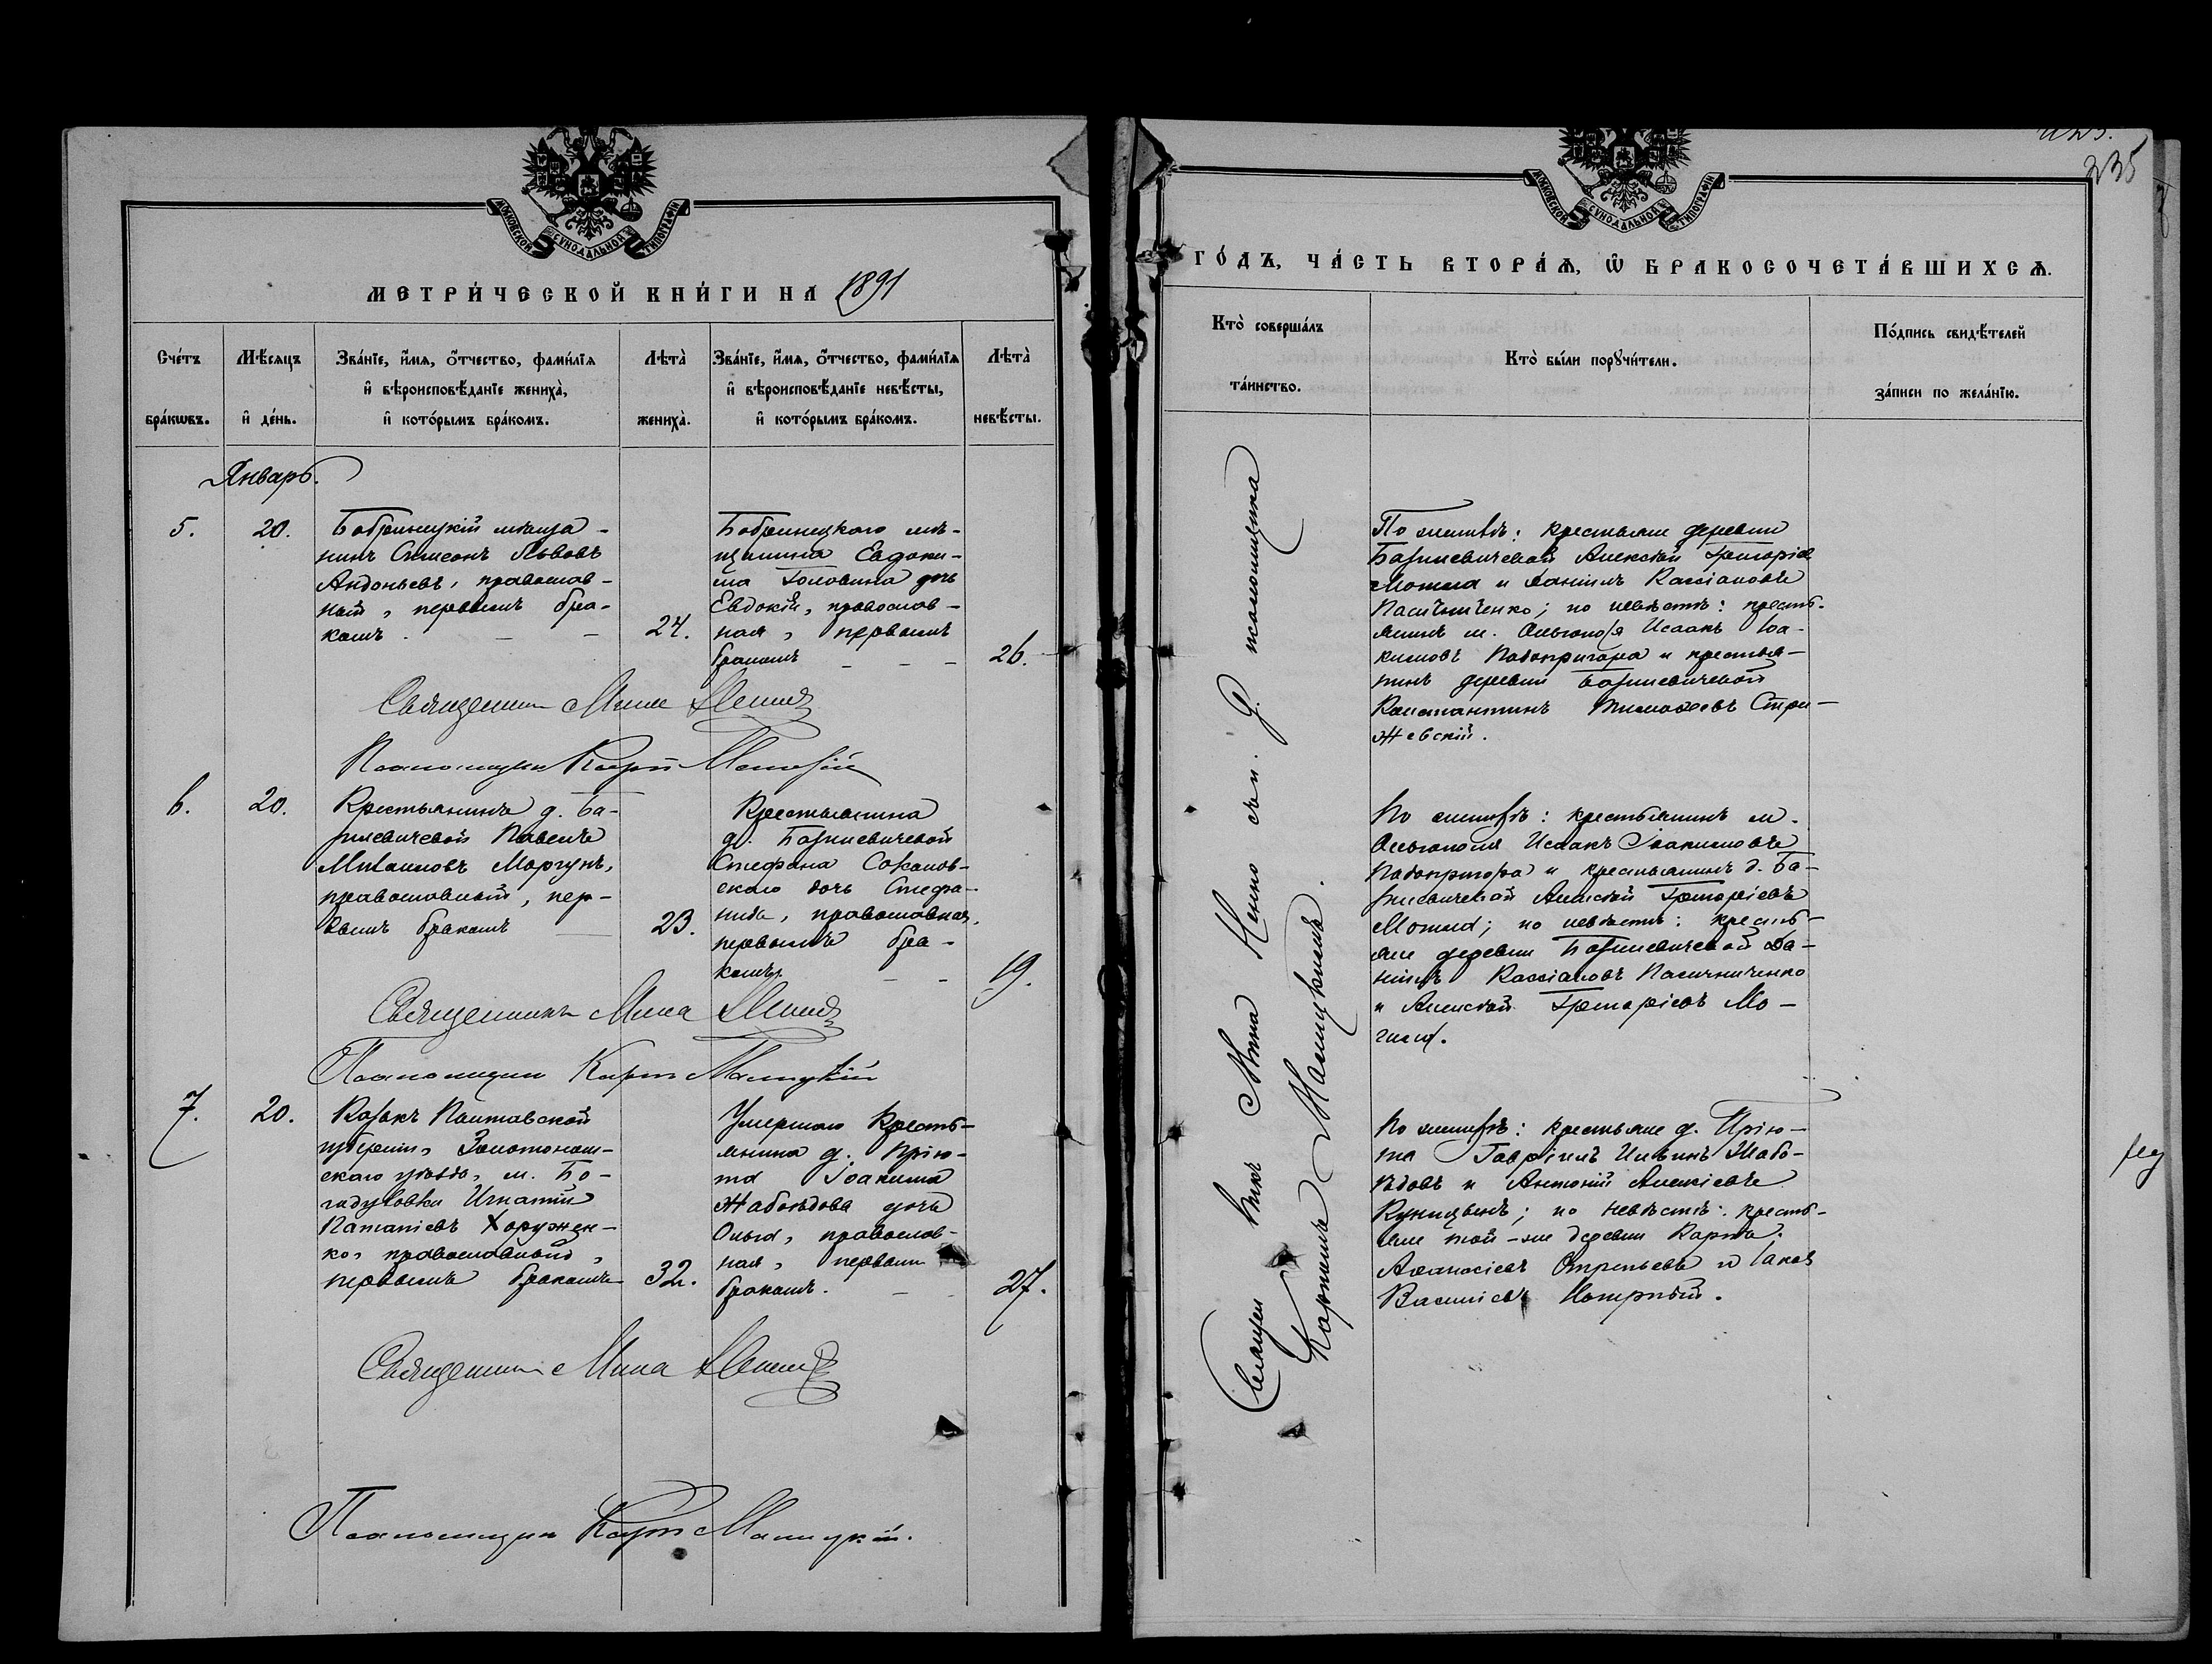 МОСКОВСКОЙ СѴНОДАЛЬНОЙ ТИПОГРАФІИ
МЕТРИ́ЧЕСКОЙ КНИ́ГИ НА 1891
Сче́тъ бра́кѡвъ.
Мѣ́сяцъ и҆ де́нь.
Зва́нїе, и҆́мѧ, ѻ҆́тчество, фами́лїѧ
и҆ вѣроисповѣ́данїе жениха̀,
и҆ кото́рымъ бра́комъ.
Лѣта̀ жениха̀.
Зва́нїе, и҆́мѧ, ѻ҆́тчество, фами́лїѧ
и҆ вѣроисповѣ́данїе невѣ́сты,
и҆ кото́рымъ бра́комъ.
Лѣта̀ невѣ́сты.
Январь.
5.
20.
Бобринецкій мѣща-
нинъ Симеонъ Львовъ
Андоньевъ, православ-
ный, первымъ бра-
комъ.
24.
Бобринецкого мѣ-
щанина Евдоки-
ма Головина дочь
Евдокія, православ-
ная, первымъ
бракомъ
26.
Священникъ Мина
Псаломщикъ Карпъ
6.
20.
Крестьянинъ д. Ба-
Павелъ
Михаиловъ Моргунъ,
православный, пер-
вымъ бракомъ
23.
Крестьянина
д.
Стефана
дочь Стефа-
нида, православная,
первымъ бра-
комъ.
19.
Священникъ Мина
Псаломщикъ Карпъ Малицкій
7.
20.
Козакъ Полтавской
губерніи, Золотонош-
скаго уѣзда, м. Бо-
Игнатій
Хоружен-
ко, православный,
первымъ бракомъ
32.
Умершаго Кресть-
янина д. Прію-
та Іоакима
Жабоѣдова дочь
Ольга, православ-
ная, первымъ
бракомъ.
27.
Священникъ Мина
Псаломщикъ Карпъ Малицкій.
335
МОСКОВСКОЙ СѴНОДАЛЬНОЙ ТИПОГРАФІИ
ГО́ДЪ, ЧА́СТЬ ВТОРА́Ѧ, Ѽ БРАКОСОЧЕТА́ВШИХСѦ.
Кто̀ соверша́лъ
та́инство.
Кто̀ бы́ли порꙋчи́тели.
По́дпись свидѣ́телей
за́писи по жела́нїю.
Священникъ Мина съ и. д. псаломщика
Карпомъ Малицкимъ.
По женихѣ: крестьяне деревни
Алексѣй Григоріевъ
Могила и Даніилъ Кассіановъ
Пасичниченко; по невѣстѣ: кресть-
янинъ м. Ольгополя Исаакъ Іоа-
кимовъ Подопригора и крестья-
нинъ деревни
Константинъ Тимоѳеевъ Стри-
жевскій.
По женихѣ: крестьянинъ м.
Ольгополя Исаакъ Іоакимовъ
Подопригора и крестьянинъ д. Ба-
Алексѣй Григоріевъ
Могила; по невѣстѣ: кресть-
яне деревни Да-
ніилъ Кассіановъ Пасичниченко
и Алексѣй Григоріевъ Мо-
гила.
По женихѣ: крестьяне д. Прію-
та Гавріилъ Ильинъ Жабо-
ѣдовъ и Антоній Алексіевъ
по невѣстѣ: кресть-
яне той-же деревни Карпъ
Аѳанасіевъ Отрепьевъ и Іаковъ
Василіевъ